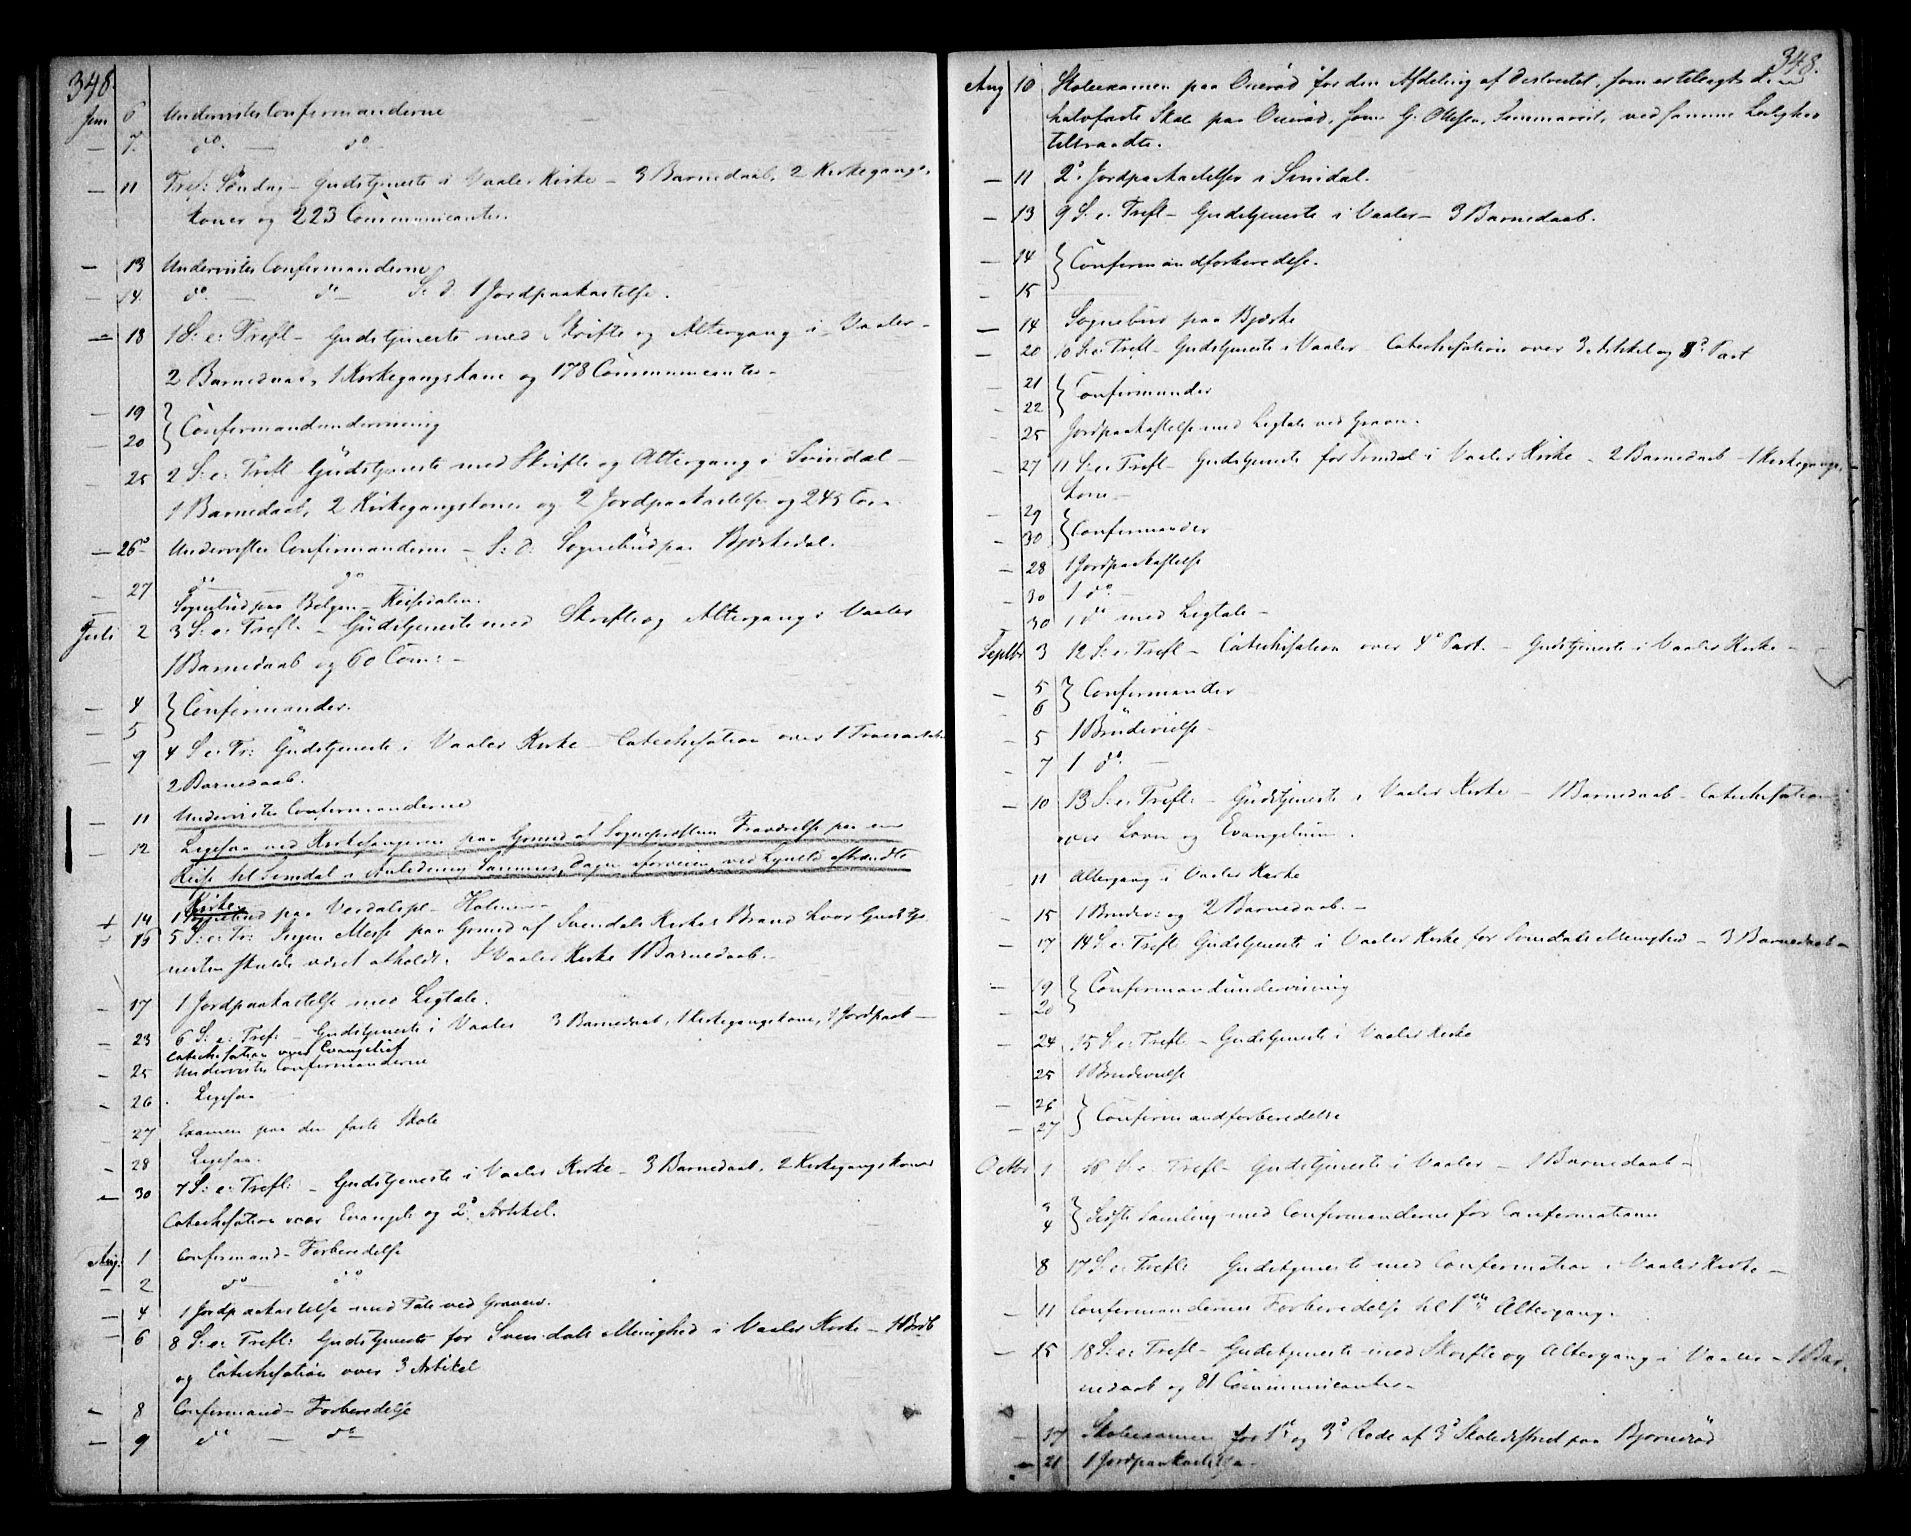 348.
Juni 6 Undervistes Confirmanderne
— 7. do. — do —
— 11 Tref: Søndag – Gudstjeneste i Vaaler Kirke – 3 Barnedaab, 2 Kirkegangs-
koner og 223 Communicanter.
— 13 Undervistes Confirmanderne
— 14. do. — do — S: d. 1 Jordpaakastelse.
— 18 1 S: e: Trefl – Gudstjeneste med Skrifte og Altergang i Vaaler –
2 Barnedaab, 1 Kirkegangskone og 178 Communicanter –
— 19 } Confirmandundervisning
— 20
25 2 S: e: Trefl – Gudstjeneste med Skrifte og Altergang i Svindal –
1 Barnedaab, 2 Kirkegangskoner og 2 Jordpaakastelse og 245 Com
— 26 Undervistes Confirmanderne – S: d: Sognebud paa Bjørkedal.
27 do — do
Sognebud paa Bolgen –
Juli 2 3 S: e: Trefl: – Gudstjeneste med Skrifte og Altergang i Vaaler
1 Barnedaab og 60 Com: –
— 4 } Confirmander.
— 5
9 4 S: e: Tr: Gudstjeneste i Vaaler Kirke – Catechisation over 1
2 Barnedaab.
— 11 Undervistes Confirmanderne
— 12 Ligesaa ved Kirkesangeren paa Grund af Sognepræstens Fraværelse paa en
Reise til Svindal i Anledning Sammes, Dagen iforveien, ved Lynild afbrændte
Kirke.
+ 14 1 Sognebud paa Verdalspl – Holmen –
— 16 5 S: e: Tr: Ingen Messe paa Grund af Svendals Kirkes Brand hvor Gudstje
nesten skulde været afholdt. I Vaaler Kirke 1 Barnedaab. –
— 17 1 Jordpaakastelse med Ligtale.
— 23 6 S: e: Tref: – Gudstjeneste i Vaaler 3 Barnedaab, 1 Kirkegangskone, 1 Jordpaak –
Catechisation over Evangeliet
— 25 Undervistes Confirmanderne
— 26. Ligesaa
— 27 Examen paa den faste Skole
— 28 Ligesaa.
— 30 7 S: e: Trefl: – Gudstjeneste i Vaaler Kirke – 3 Barnedaab, 2 Kirkegangskoner
Catechisation over Evangel: og 2. Artikel.
Aug: 1 Confirmand – Forberedelse
— 2 do — do
— 4 1 Jordpaakastelse med Tale ved Graven.
— 6 8 S: e: Trefl: Gudstjeneste for Svendals Menighed i Vaaler Kirke – 1 Brdb
og Catechisation over 3 Artikel
— 8 Confirmand – Forberedelse
— 9 do — do
348.
Aug 10 Skoleexamen paa for den Afdeling af Districtet, som er tillagt d.
halvfaste Skole paa som G. Ottesen, ved samme Leilighed
tiltraadte.
— 11 2 Jordpaakastelser i Svindal.
— 13 9 S: e: Trefl – Gudstjeneste i Vaaler – 3 Barnedaab.
— 14 } Confirmandforberedelse.
— 15
— 14 Sognebud paa Bjerke
— 20 10 S: e: Trefl – Gudstjeneste i Vaaler Catechisation over 3 Artikel og 3 Part
— 21 } Confirmander
— 22
— 25 Jordpaakastelse med Ligtale ved Graven.
— 27 11 S: e: Trefl – Gudstjeneste for Svindal i Vaaler Kirke – 2 Barnedaab – 1 Kirkegangs-
kone –
— 29 } Confirmander
— 30
— 28 1 Jordpaakastelse
— 30 1 do –
30 1 do med Ligtale –
Septbr 3 12 S: e: Trefl – Catechisation over 4 Part – Gudstjeneste i Vaaler Kirke –
— 5 } Confirmander
6
— 5 1 Brudevielse –
— 7 1 do. –
— 10 13 S: e: Trefl: – Gudstjeneste i Vaaler Kirke – 1 Barnedaab – Catechisation
over Loven og Evangelium.
— 11 Altergang i Vaaler Kirke
— 15 1 Brudev: og 2 Barnedaab. –
— 17 14 S: e: Trefl Gudstjeneste i Vaaler Kirke for Svindals Menighed – 3 Barnedaab –
— 19 } Confirmandundervisning
— 20
— 24 15 S: e: Trefl – Gudstjeneste i Vaaler Kirke
25 1 Brudevielse
— 26 } Confirmandforberedelse
— 27
Octbr 1 16 S: e: Trefl – Gudstjeneste i Vaaler – 1 Barnedaab –
3 } Sidste Samling med Confirmanderne før Confirmationen
4
8 17 S: e: Trefl: Gudstjeneste med Confirmation i Vaaler Kirke –
— 11 Confirmandernes Forberedelse til 1ste Altergang.
— 15 18 S: e: Trefl – Gudstjeneste med Skrifte og Altergang i Vaaler – 1 Bar-
nedaab og 81 Communicanter –
— 17 Skoleexamen for 1ste og 3d Rode af 3d Skoledistrict paa Bjørnerød
— 21 1 Jordpaakastelse –